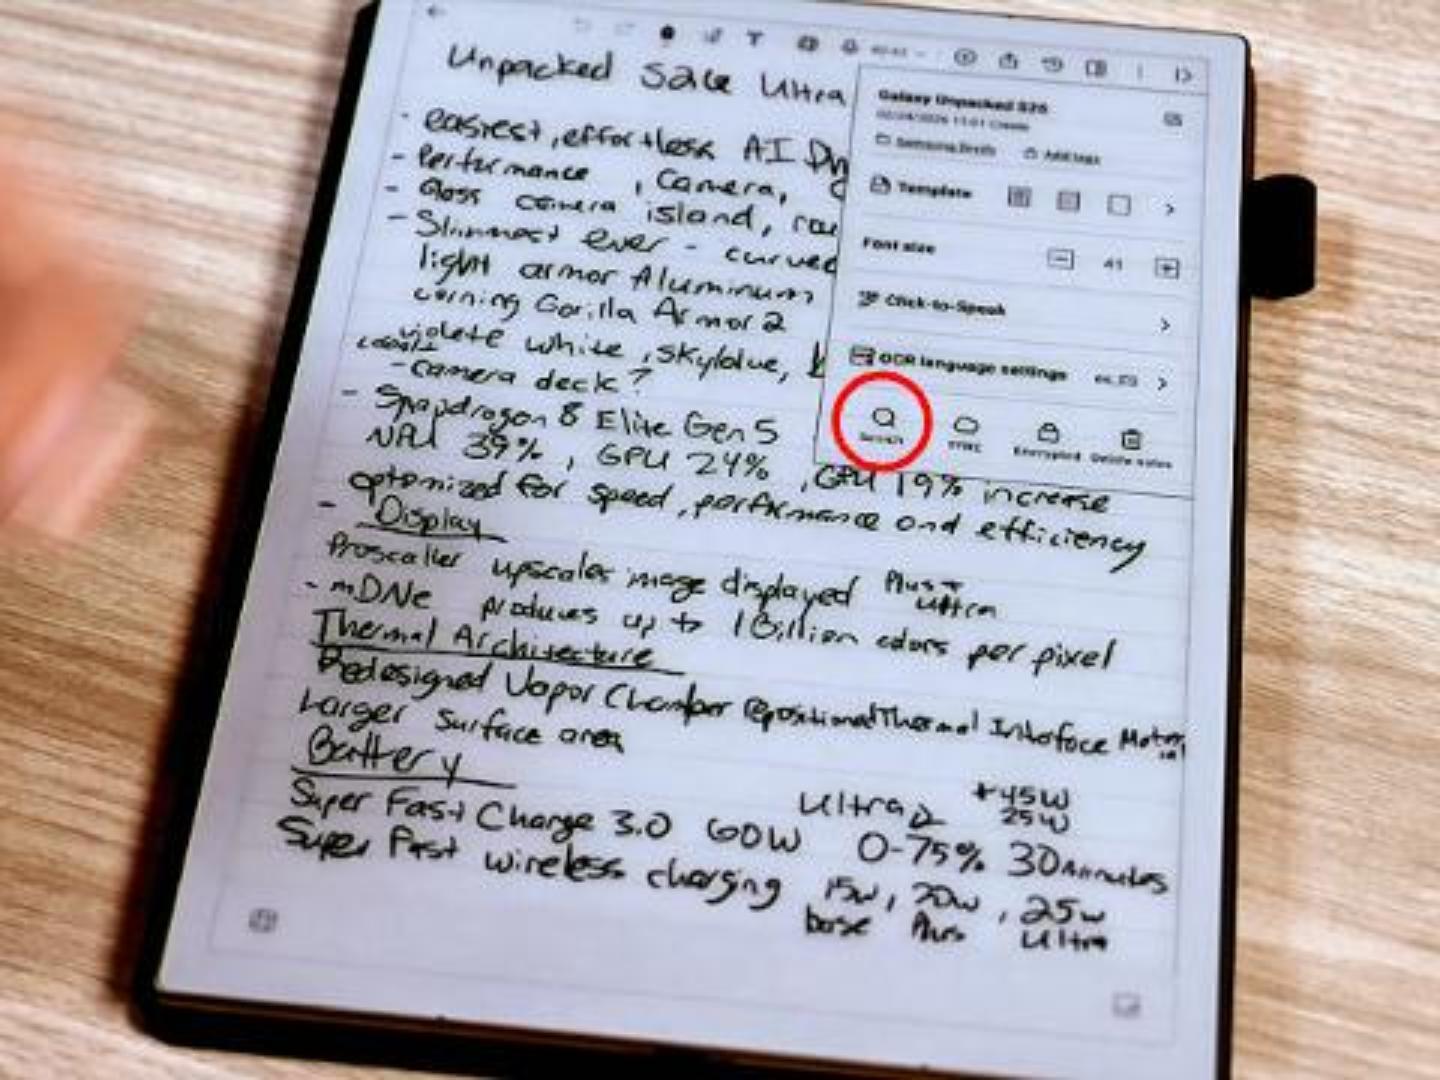 Unpacked S26 Ultra
Galaxy Unpacked S26
Samsung Briefs Add tags
Template
Font size 41
Click-to-Speak
OCR language settings
Search SYNC Encrypted Delete notes
- easiest, effortless AI
- Performance, Camera,
- Glass camera island,
- Slimmest Ever - curved
light armor Aluminum
corning Gorilla Armor 2
violete white, skyblue,
cobalt
- camera deck?
- Snapdragon 8 Elite Gen 5
NPU 39%, GPU 24%, CPU 19% increase
optomized for speed, performance and efficiency
- Display
Proscaller upscales image displayed Plus + Ultra
- mDNe produces up to 1 Billion colors per pixel
Thermal Architecture
Redesigned Vapor Chamber repositioned Thermal Interface
Larger surface area
Battery
Ultra +45W
25W
Super Fast Charge 3.0 60W 0-75% 30 minutes
Super Fast wireless charging 15w, 20w, 25w
base Plus Ultra